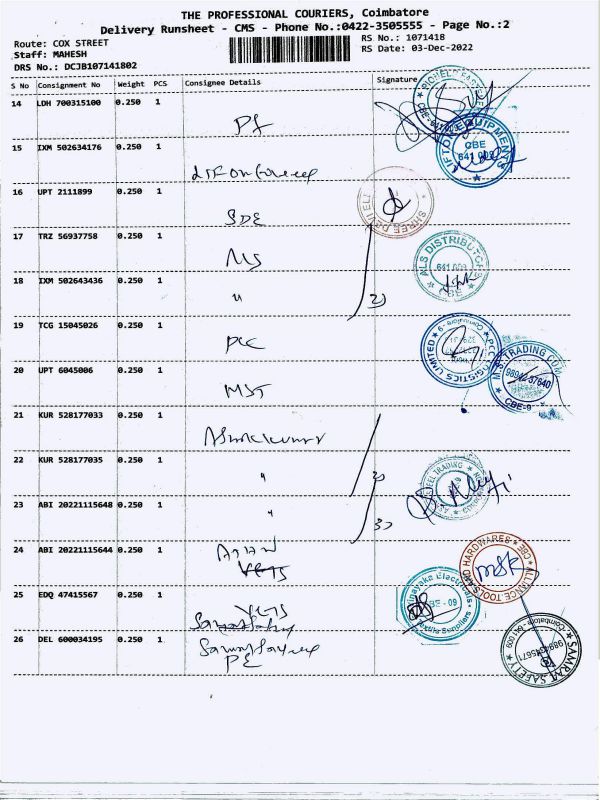 THE PROFESSIONAL COURIERS, Coimbatore
Delivery Runsheet - CMS - Phone No.:0422-3505555 - Page No.:2
Route: COX STREET
Staff: MAHESH
DRS No.: DCJB107141802
RS No.: 1071418
RS Date: 03-Dec-2022
S No Consignment No Weight PCS Consignee Details Signature
14 LDH 700315100 0.250 1
15 IXM 502634176 0.250 1
CBE
641 009
16 UPT 2111899 0.250 1
SDE
SHREE DEVI ELE
17 TRZ 56937758 0.250 1
ALS DISTRIBUTORS
641 009
CBE
18 IXM 502643436 0.250 1
"
2)
19 TCG 15045026 0.250 1
PCC
PCC LOGISTICS LIMITED
20 UPT 6045006 0.250 1
MST
M.S. TRADING COM
98942-57640
CBE-9
21 KUR 528177033 0.250 1
22 KUR 528177035 0.250 1
"
2)
STEEL TRADING
23 ABI 20221115648 0.250 1
"
3)
24 ABI 20221115644 0.250 1
ALLIANCE TOOLS AND HARDWARES CBE
MSK
25 EDQ 47415567 0.250 1
Vinayaka Electricals
CBE - 09
Textile Suppliers
26 DEL 600034195 0.250 1
PE
SAMRAT SAFETY
Coimbatore - 641 009
9894345671